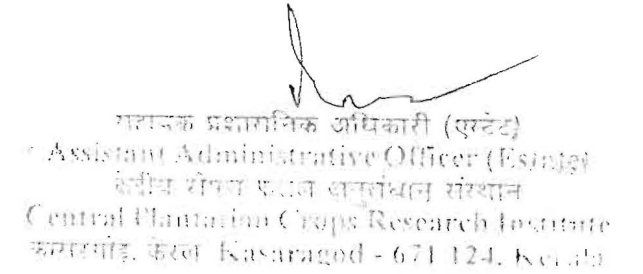 सहायक प्रशासनिक अधिकारी (एस्टेट)
Assistant Administrative Officer (Estate)
केंद्रीय रोपण फसल अनुसंधान संस्थान
Central Plantation Crops Research Institute
कासरगोड, केरल Kasaragod - 671 124, Kerala